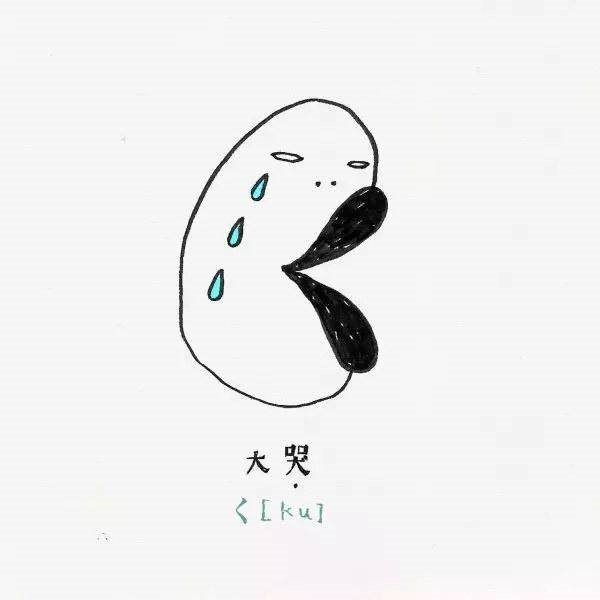 大哭
く[ku]